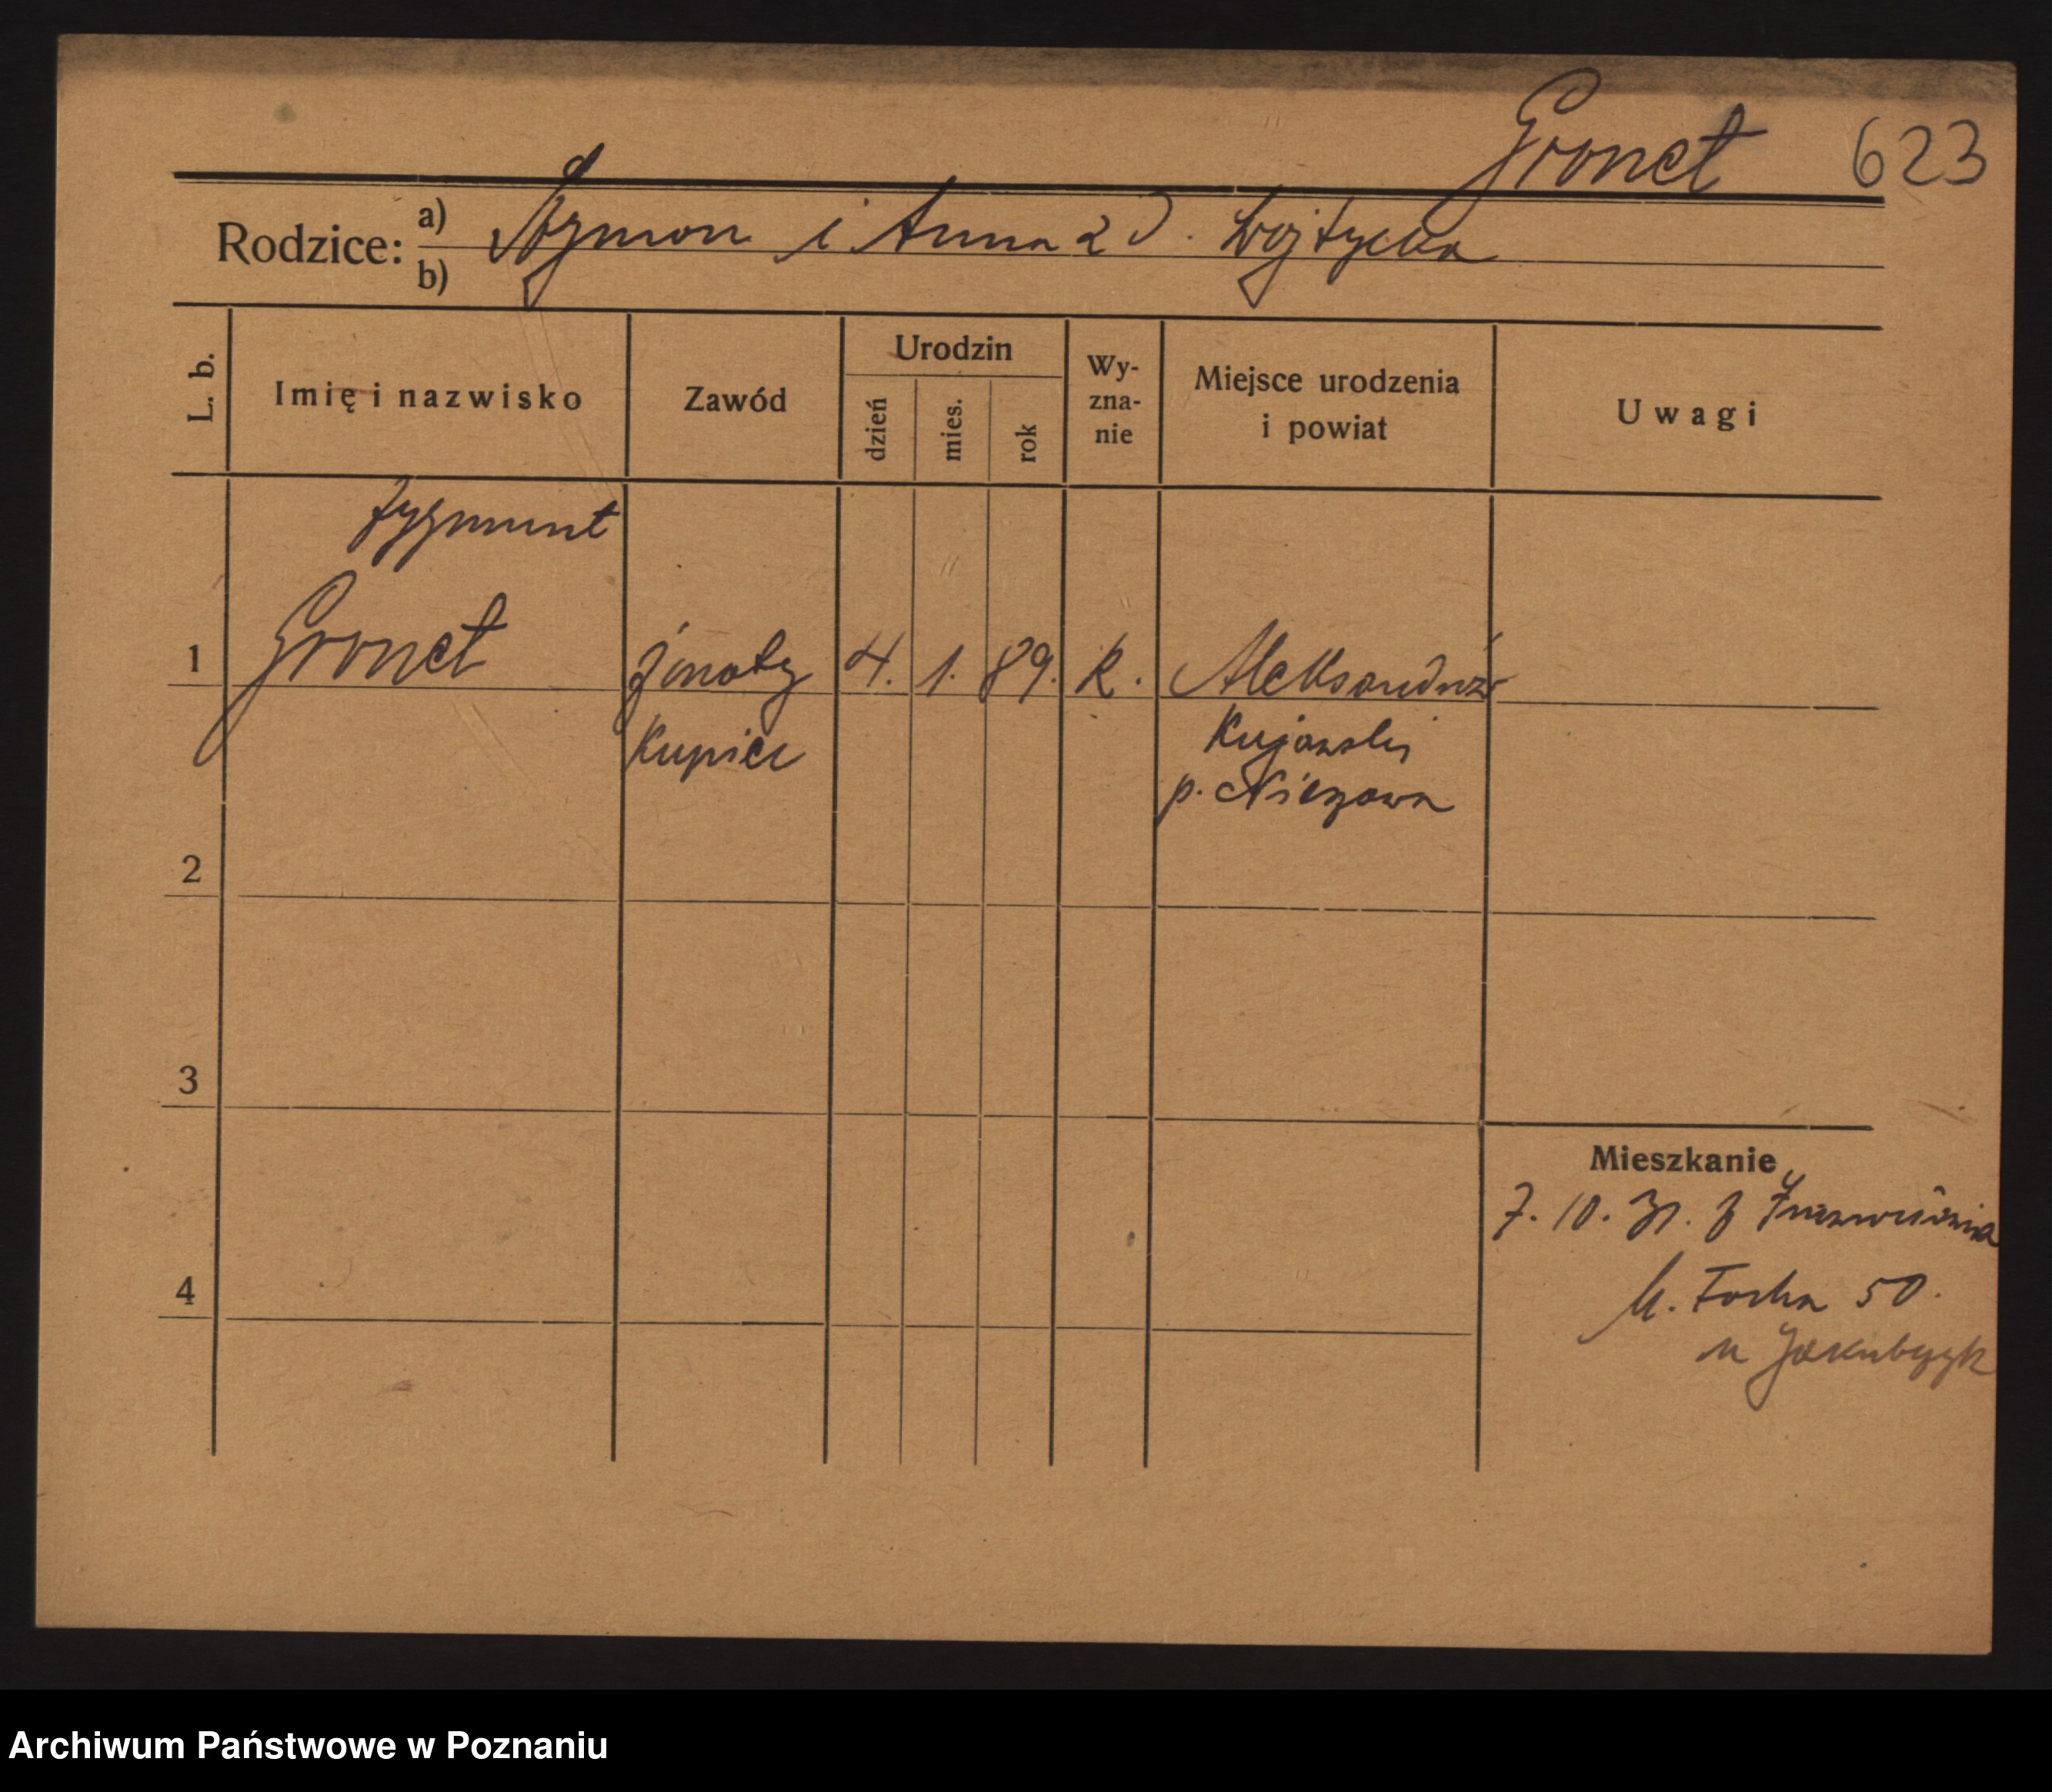 Gronet 623
Rodzice: a) b) Szymon i Anna z d. Wojtycka
L. b. Imię i nazwisko Zawód Urodzin dzień mies. rok Wy-zna-nie Miejsce urodzenia i powiat Uwagi
Zygmunt
1 Gronet żonaty 4. 1. 89. k. Aleksandrów
kupiec Kujawski
p. Nieszawa
2
3
Mieszkanie
7. 10. 31. z Inowrocławia
M. Focha 50.
4
u Jakubczyk
Archiwum Państwowe w Poznaniu